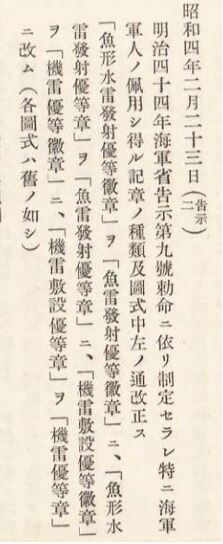 昭和四年二月二十三日(告示二)
明治四十四年海軍省告示第九號勅命ニ依リ制定セラレ特ニ海軍
軍人ノ佩用シ得ル記章ノ種類及圖式中左ノ通改正ス
「魚形水雷發射優等徽章」ヲ「魚雷發射優等徽章」ニ、「魚形水
雷發射優等章」ヲ「魚雷發射優等章」ニ、「機雷敷設優等徽章」
ヲ「機雷優等徽章」ニ、「機雷敷設優等章」ヲ「機雷優等章」
ニ改ム(各圖式ハ舊ノ如シ)